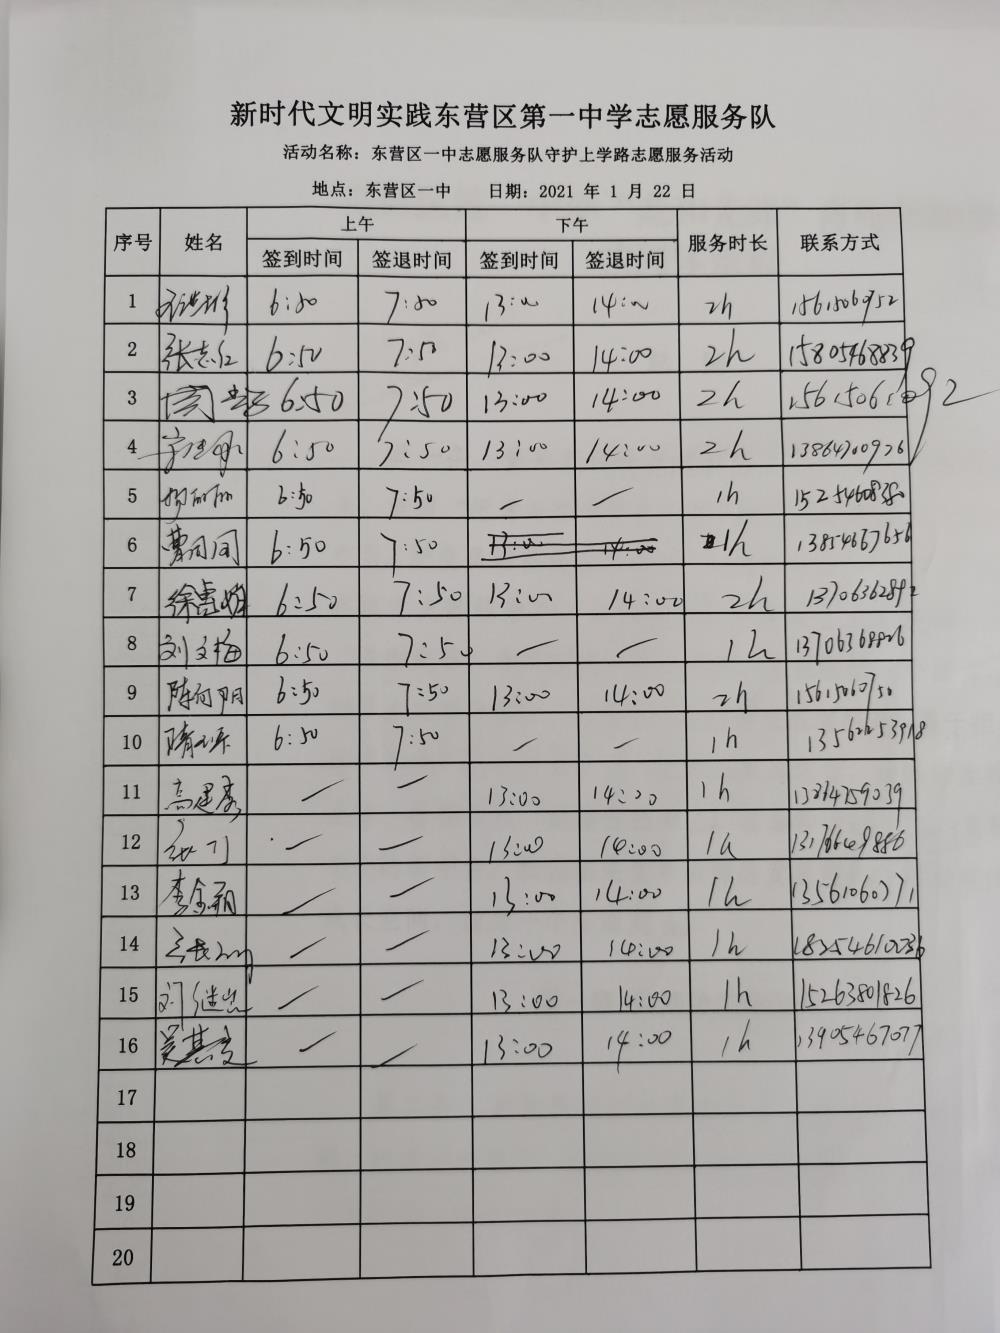 新时代文明实践东营区第一中学志愿服务队
活动名称：东营区一中志愿服务队守护上学路志愿服务活动
地点：东营区一中 日期：2021 年 1 月 22 日
序号 姓名 上午 下午 服务时长 联系方式
签到时间 签退时间 签到时间 签退时间
1 6:50 7:50 13:00 14:00 2h
2 张志仁 6:50 7:50 13:00 14:00 2h 15805468839
3 6:50 7:50 13:00 14:00 2h
4 6:50 7:50 13:00 14:00 2h 13864700926
5 杨丽丽 6:50 7:50 — — 1h 15254608380
6 曹同同 6:50 7:50 13:00 14:00 1h 13854667656
7 徐雪娟 6:50 7:50 13:00 14:00 2h 13706362892
8 刘文梅 6:50 7:50 — — 1h 13706368826
9 陈向明 6:50 7:50 13:00 14:00 2h
10 6:50 7:50 — — 1h
11 高建秀 — — 13:00 14:00 1h
12 — — 13:00 14:00 1h
13 李金朝 — — 13:00 14:00 1h 13561060771
14 — — 13:00 14:00 1h 18254610036
15 刘继忠 — — 13:00 14:00 1h 15263801826
16 吴其文 — — 13:00 14:00 1h 13905467077
17
18
19
20